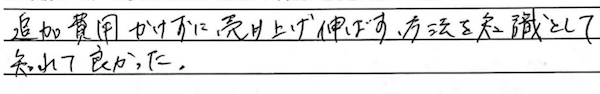 追加費用かけずに売り上げ伸ばす方法を知識として
知れて良かった。